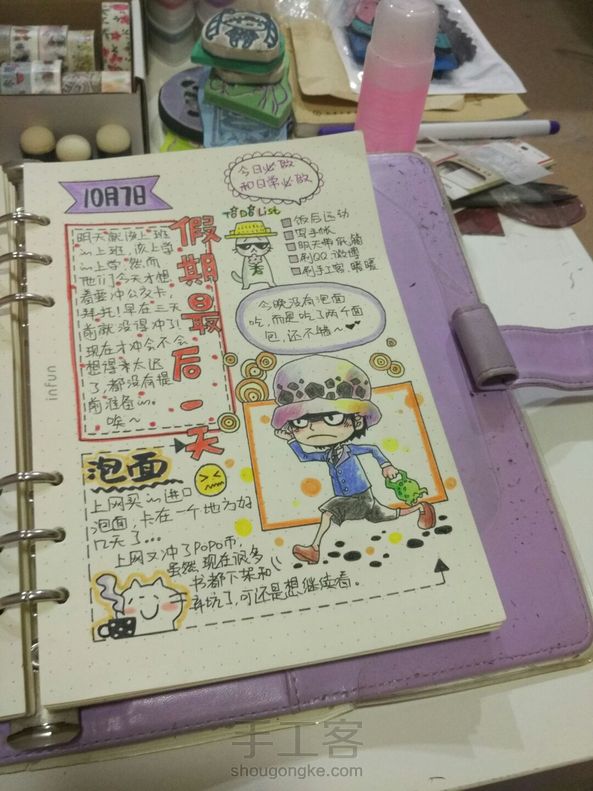 10月7日
今日必做
和日常必做
嘻嘻List
饭后运动
写手帐
明天带纸箱
刷QQ、微博
刷手工客、嘻嘻
假期最后一天
明天就该上班
in上班,该上学
in上学,然而
他们今天才想
着要冲公交卡,
拜托!早在三天
前就没得冲了!
现在才冲会不会
想得来太迟
了,都没有提
前准备in。
唉~
今晚没有泡面
吃,而是吃了两个面
包,还不错~
泡面
上网买in进口
泡面,卡在一个地方好
几天了...
上网又冲了POPO币,
虽然现在很多
书都下架和
弃坑了,可还是想继续看。
infun
手工客
shougongke.com